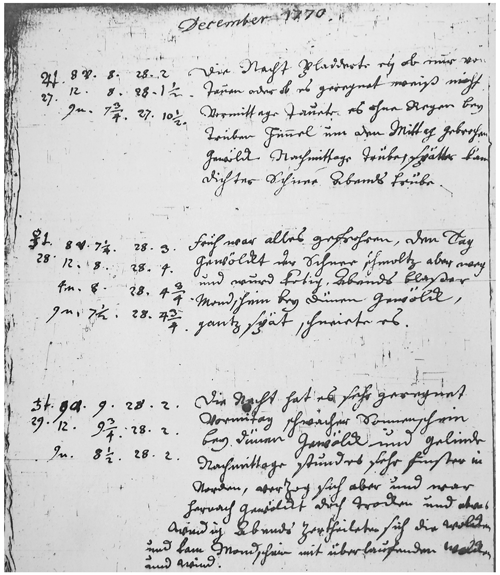 December 1770.
♃ 8 v. 8. 28. 2. Die Nacht pladderte es ob nur vom
27. 12. 8. 28. 1½. oder ob es geregnet weiß nicht
9 n. 7¾. 27. 10½. Vormittags tauete es ohne Regen bey
trüben Himmel um den Mittag gebrochen
Gewölck. Nachmittags trübe, später kam
dichter Schnee Abends trübe.
♀ 8 v. 7¼. 28. 3. Früh war alles gefrohren, den Tag
28. 12. 8. 28. 4. Gewölckt der Schnee schmoltz aber weg
4 n. 8. 28. 4¾. und wurd kotig. Abends blaßer
9 n. 7½. 28. 4¾. Mondschein bey dünen Gewölck,
gantz spät schneiete es.
♄ 9. 28. 2. Die Nacht hat es sehr geregnet
29. 12. 9¾. 28. 2. Vormittag schwacher Sonnenschein
9 n. 8½. 28. 2. bey dünen Gewölck und gelinde
Nachmittags stund es sehr finster in
Norden, verzog sich aber und war
hernach gewölckt doch trocken und etwas
windig Abends zertheileten sich die Wolcken
und kam Mondschein mit überlaufenden Wolcken
und Wind.